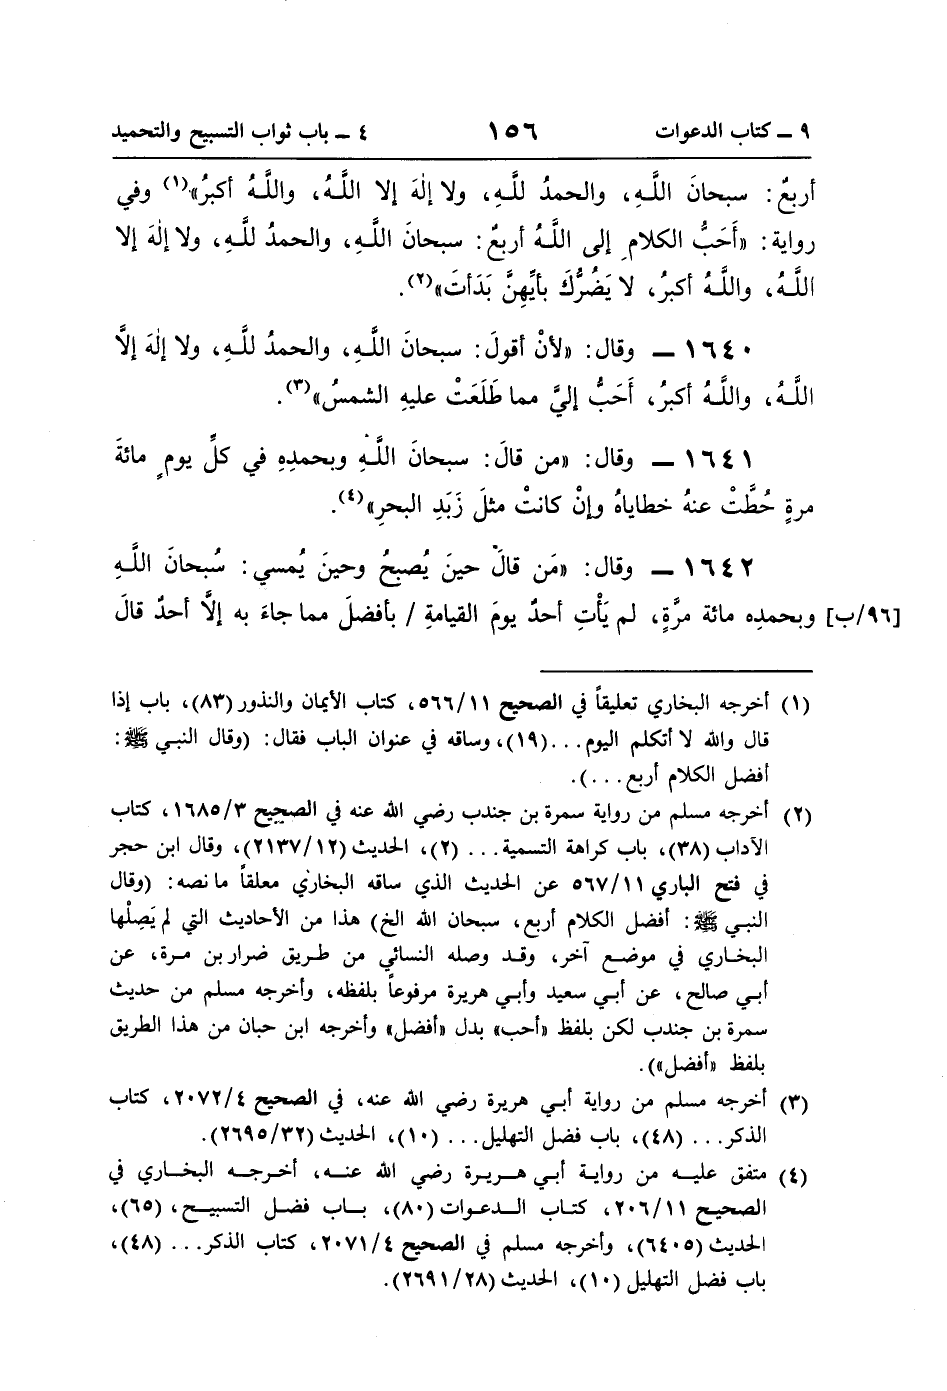 ٩ ــ كتاب الدعوات ١٥٦ ٤ ــ باب ثواب التسبيح والتحميد
أربعٌ: سبحانَ اللَّهِ، والحمدُ للَّهِ، ولا إلٰهَ إلا اللَّهُ، واللَّهُ أكبرُ»(١) وفي
رواية: «أَحَبُّ الكلامِ إلى اللَّهُ أربعٌ: سبحانَ اللَّهِ، والحمدُ للَّهِ، ولا إلٰهَ إلا
اللَّهُ، واللَّهُ أكبرُ، لا يَضُرُّكَ بأيِّهِنَّ بَدَأتَ»(٢).
١٦٤٠ ــ وقال: «لأنْ أقولَ: سبحانَ اللَّهِ، والحمدُ للَّهِ، ولا إلٰهَ إلَّا
اللَّهُ، واللَّهُ أكبرُ، أَحَبُّ إليَّ مما طَلَعَتْ عليهِ الشمسُ»(٣).
١٦٤١ ــ وقال: «من قالَ: سبحانَ اللَّهِ وبحمدِهِ في كلِّ يومٍ مائةَ
مرةٍ حُطَّتْ عنهُ خطاياهُ وإنْ كانتْ مثلَ زَبَدِ البحرِ»(٤).
١٦٤٢ ــ وقال: «مَن قالَ حينَ يُصبحُ وحينَ يُمسي: سُبحانَ اللَّهِ
[٩٦/ب] وبحمدِه مائة مرَّةٍ، لم يَأْتِ أحدٌ يومَ القيامةِ / بأفضلَ مما جاءَ به إلَّا أحدٌ قالَ
(١) أخرجه البخاري تعليقاً في الصحيح ٥٦٦/١١، كتاب الأيمان والنذور (٨٣)، باب إذا
قال والله لا أتكلم اليوم... (١٩)، وساقه في عنوان الباب فقال: (وقال النبي ﷺ:
أفضل الكلام أربع...).
(٢) أخرجه مسلم من رواية سمرة بن جندب رضي الله عنه في الصحيح ١٦٨٥/٣، كتاب
الآداب (٣٨)، باب كراهة التسمية... (٢)، الحديث (٢١٣٧/١٢)، وقال ابن حجر
في فتح الباري ٥٦٧/١١ عن الحديث الذي ساقه البخاري معلقاً ما نصه: (وقال
النبي ﷺ: أفضل الكلام أربع، سبحان الله الخ) هذا من الأحاديث التي لم يَصِلْها
البخاري في موضع آخر، وقد وصله النسائي من طريق ضرار بن مرة، عن
أبي صالح، عن أبي سعيد وأبي هريرة مرفوعاً بلفظه، وأخرجه مسلم من حديث
سمرة بن جندب لكن بلفظ «أحب» بدل «أفضل» وأخرجه ابن حبان من هذا الطريق
بلفظ «أفضل»).
(٣) أخرجه مسلم من رواية أبي هريرة رضي الله عنه، في الصحيح ٢٠٧٢/٤، كتاب
الذكر... (٤٨)، باب فضل التهليل... (١٠)، الحديث (٢٦٩٥/٣٢).
(٤) متفق عليه من رواية أبي هريرة رضي الله عنه، أخرجه البخاري في
الصحيح ٢٠٦/١١، كتاب الدعوات (٨٠)، باب فضل التسبيح، (٦٥)،
الحديث (٦٤٠٥)، وأخرجه مسلم في الصحيح ٢٠٧١/٤، كتاب الذكر... (٤٨)،
باب فضل التهليل (١٠)، الحديث (٢٦٩١/٢٨).